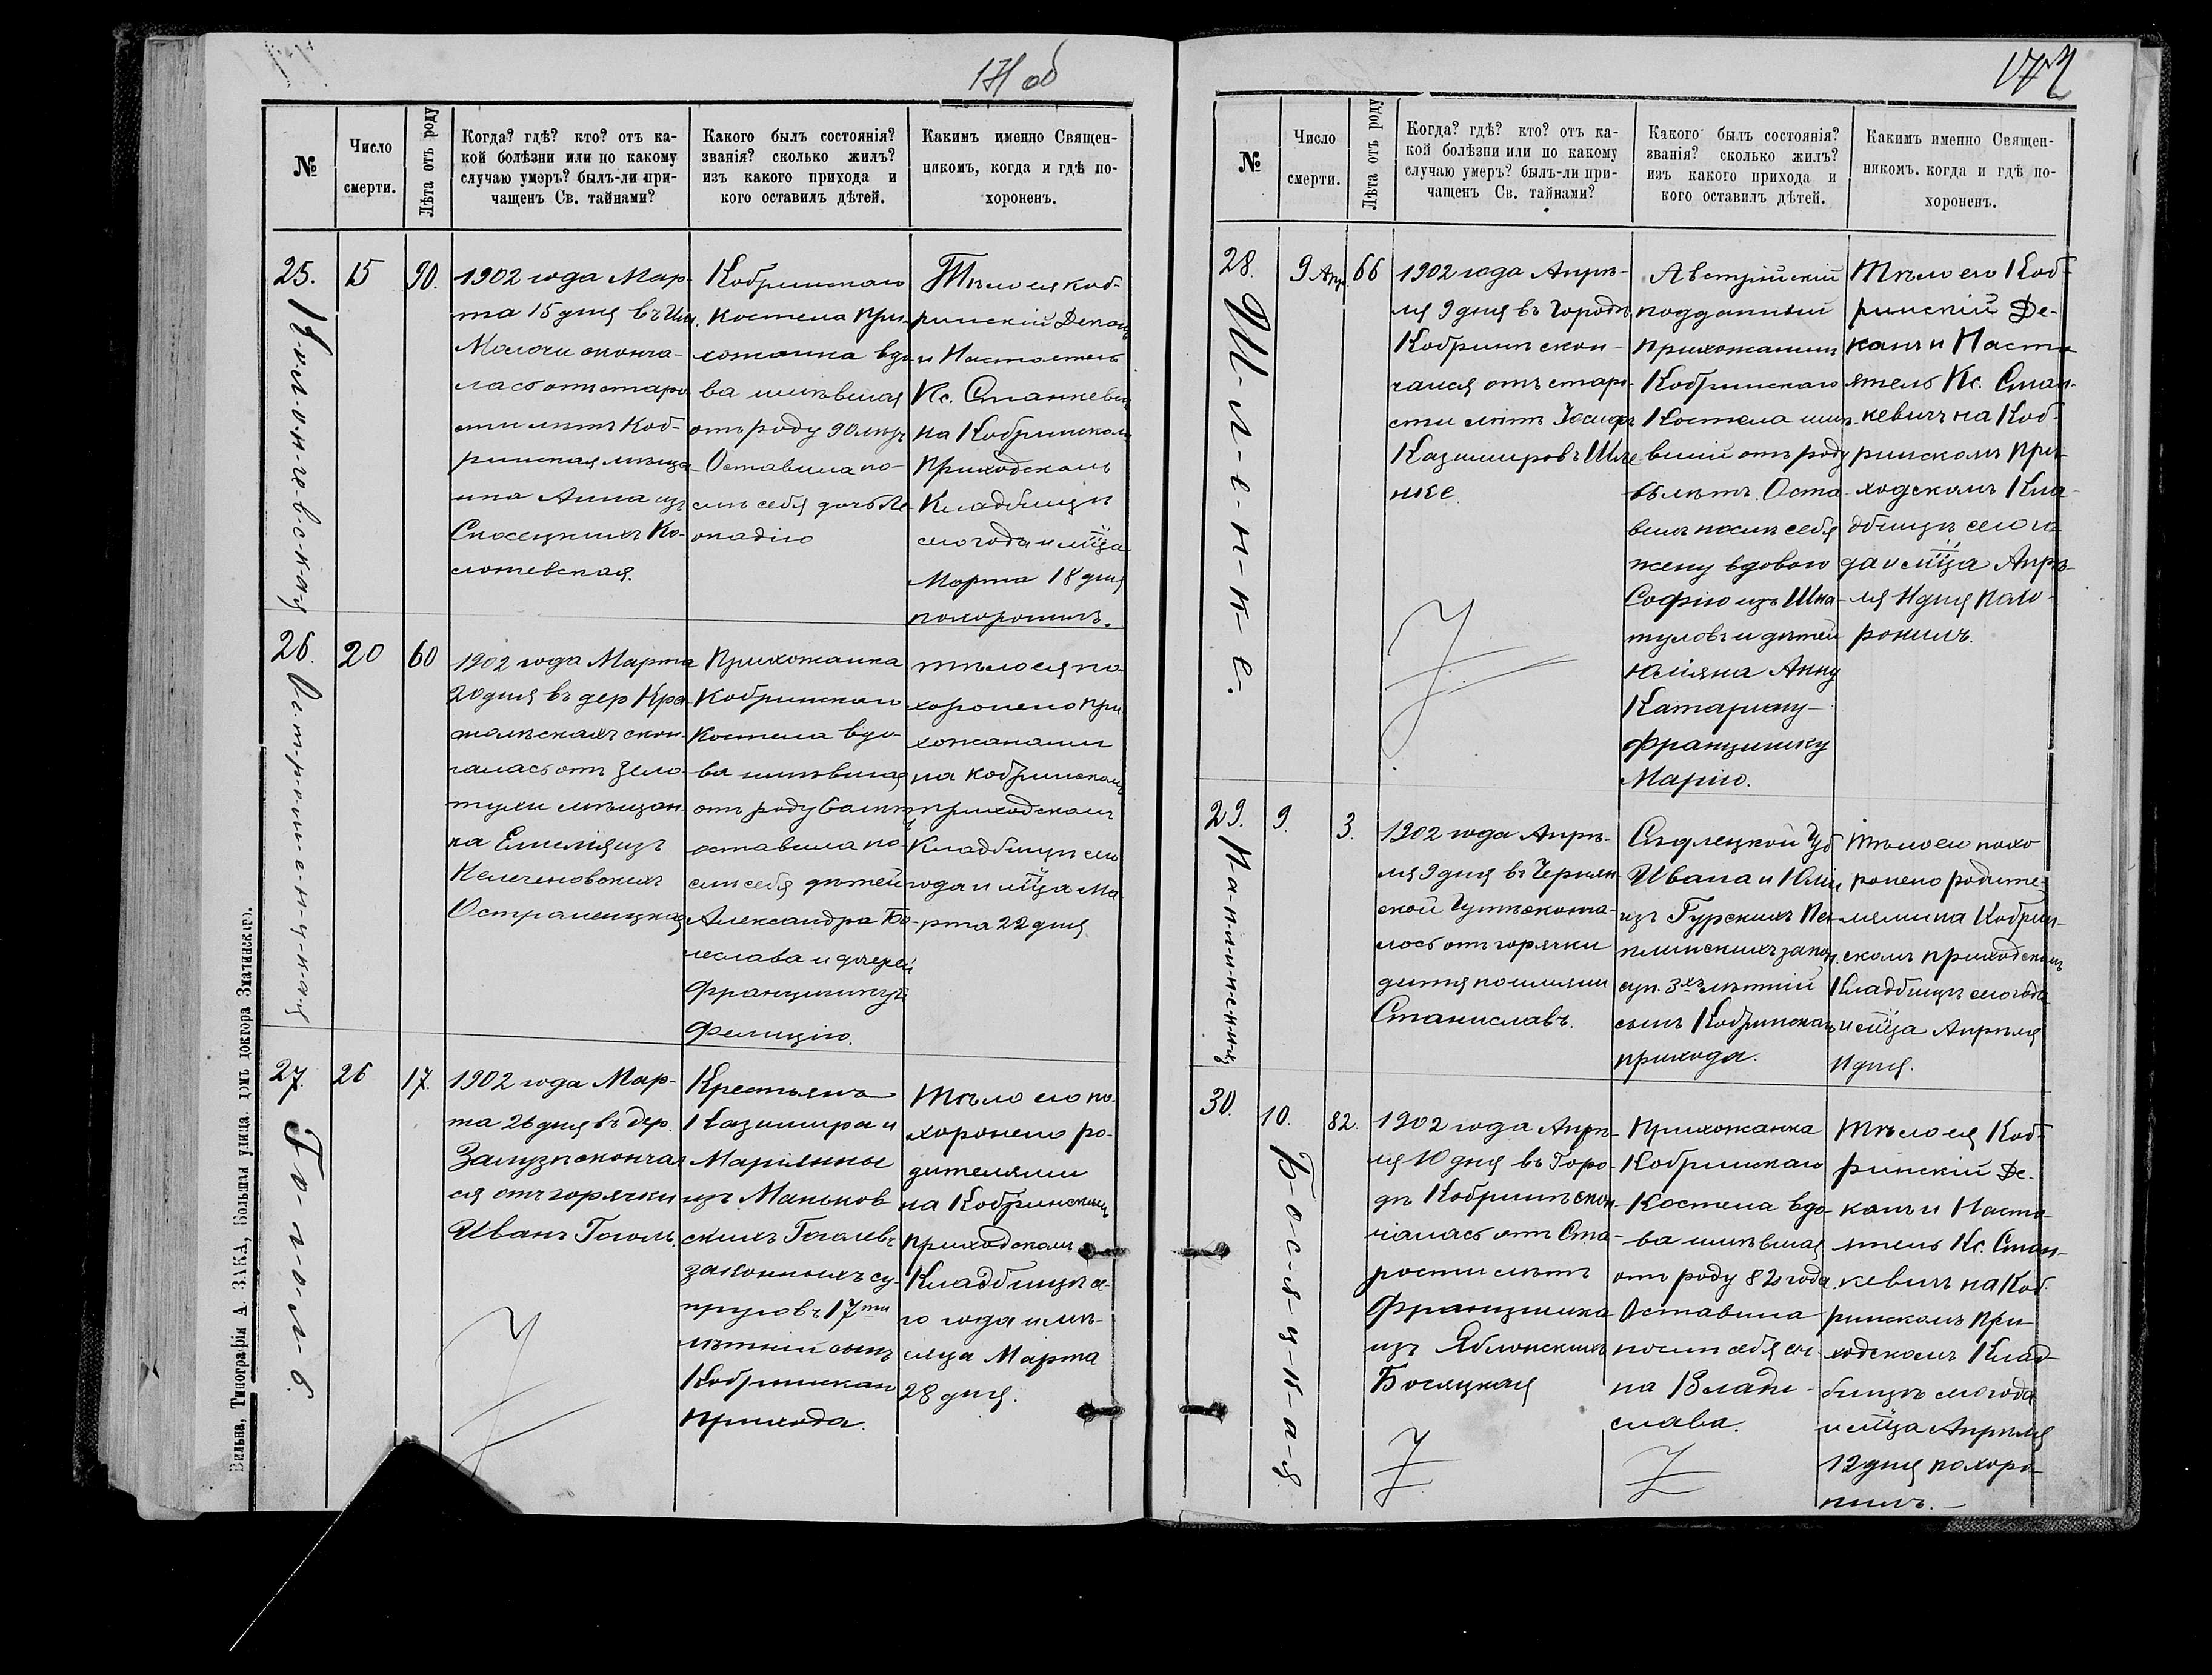 171 об
№
Число
смерти.
Лѣта отъ роду
Когда? гдѣ? кто? отъ ка-
кой болѣзни или по какому
случаю умеръ? былъ-ли при-
чащенъ Св. тайнами?
Какого былъ состоянія?
званія? сколько жилъ?
изъ какого прихода и
кого оставилъ дѣтей.
Какимъ именно Священ-
никомъ, когда и гдѣ по-
хороненъ.
25.
15
90.
1902 года Мар-
та 15 дня въ Им.
сконча-
ласъ отъ старо
сти лѣтъ Коб-
ринская мѣща-
нка Анна изъ
Ко-
Кобринскаго
костела при-
хожанка вдо
ва жившая
отъ роду 90 лѣтъ
Оставила по-
слѣ себя дочь Ле
окадію
Тѣло ея Коб-
ринскій Деканъ
и Настоятель
Кс. Станкевичъ
на Кобринскомъ
Приходскомъ
Кладбищѣ
сего года и мѣца
Марта 18 дня
похоронилъ.
26.
Островецкая
20
60
1902 года Марта
20 дня въ дер
скон-
чаласъ отъ
мѣщан
ка Емилія изъ
Прихожанка
Кобринскаго
Костела вдо-
ва жившая
отъ роду 60 лѣтъ
оставила по-
слѣ себя дѣтей
Александра Бо-
леслава и дочерей
Францишку и
Фелицію.
тѣло ея по-
хоронено при
хожанами
на Кобринскомъ
приходскомъ
Кладбищѣ сего
года и мѣца Ма
рта 22 дня
27.
Гоголь.
26
17.
1902 года Мар-
та 26 дня въ дер.
Залузѣ скончал
ся отъ горячки
Иванъ Гоголь.
Крестьянъ
Казимира и
Маріянны
изъ Маньков
скихъ Гоголевъ
законныхъ су-
пруговъ 17ти
лѣтній сынъ
Кобринскаго
прихода.
Тѣло его по-
хоронено ро-
дителями
на Кобринскомъ
приходскомъ
Кладбищѣ се-
го года и мѣ-
сяца Марта
28 дня.
Вильна, Типографія А. ЗАКА, Большая улица, домъ доктора
№
Число
смерти.
Лѣта отъ роду
Когда? гдѣ? кто? отъ ка-
кой болѣзни или по какому
случаю умеръ? былъ-ли при-
чащенъ Св. тайнами?
Какого былъ состоянія?
званія? сколько жилъ?
изъ какого прихода и
кого оставилъ дѣтей.
Какимъ именно Священ-
никомъ. когда и гдѣ по-
хороненъ.
28.
Ш-л-е-н-к-е.
9 Апр
66
1902 года Апрѣ-
ля 9 дня въ Городѣ
Кобринѣ скон-
чался отъ старо-
сти лѣтъ Іосифъ
Казимировъ Шле
нке
Австрійскій
подданный
прихожанинъ
Кобринскаго
Костела жив-
вшій отъ роду
66 лѣтъ. Оста-
вилъ послѣ себя
жену вдовою
Софію изъ Шка-
туловъ и дѣтей
Юліяна Анну
Катарину-
Францишку
Марію.
Тѣло его Коб-
ринскій Де-
канъ и Насто
ятель Кс. Стан-
кевичъ на Коб-
ринскомъ при-
ходскомъ Кла-
дбищѣ сего го-
да и мѣца Апрѣ-
ля 11 дня похо-
ронилъ.
29.
9.
3.
1902 года Апрѣ-
ля 9 дня въ
сконча-
лось отъ горячки
дитя по имяни
Станиславъ.
Сѣдлецкой Губ
Ивана и Юліи
изъ Гурскихъ
закон.
суп. 3хъ лѣтній
сынъ Кобринскаго
прихода.
тѣло его похо
ронено родите-
лями на Кобрин-
скомъ приходскомъ
Кладбищѣ сего года
и мѣца Апрѣля
11 дня.
30.
Б-о-с-я-ц-к-а-я.
10.
82.
1902 года Апрѣ-
ля 10 дня въ Горо-
дѣ Кобринѣ скон-
чалась отъ Ста-
рости лѣтъ
Францишка
изъ Яблонскихъ
Босяцкая
Прихожанка
Кобринскаго
Костела вдо-
ва жившая
отъ роду 82 года.
Оставила
послѣ себя сы-
на Влади-
слава.
Тѣло ея Коб-
ринскій Де-
канъ и Насто-
ятель Кс. Стан-
кевичъ на Коб-
ринскомъ при-
ходскомъ Клад-
бищѣ сего года
и мѣца Апрѣля
12 дня похоро-
нилъ.